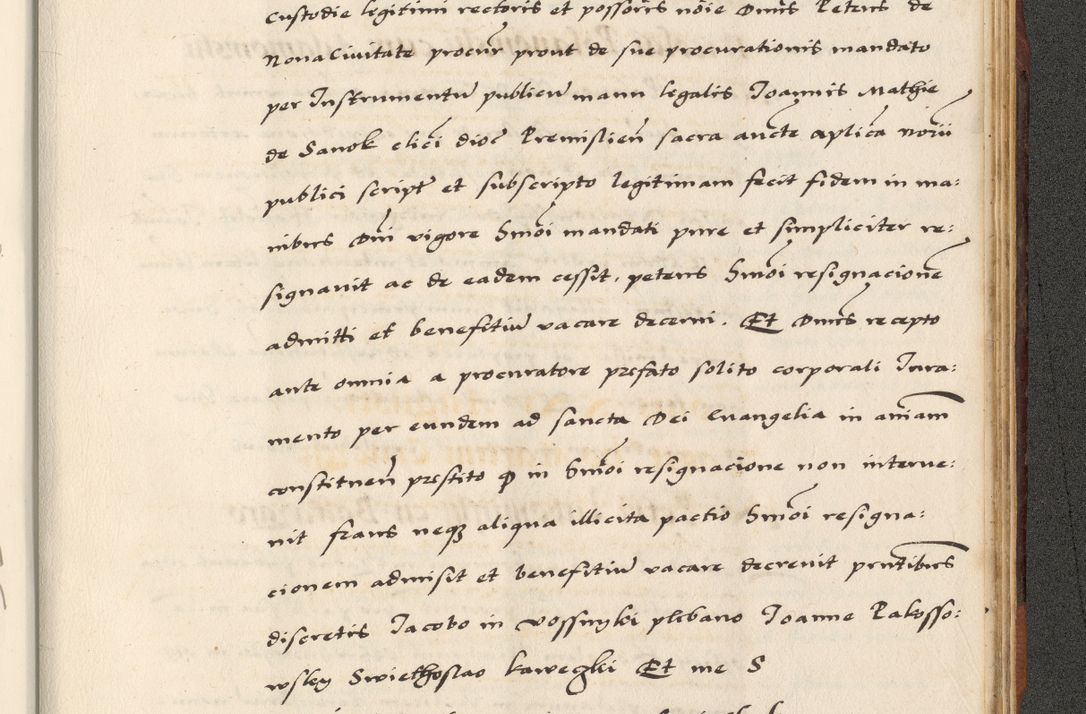 custodie legitimi rectoris et possoris noie Dnus Petrus de
Nova Civitate procur prout de sue procurationis mandato
per Instrumentu publicu manu legalis Joannis Mathie
de Sanok clici dioc Premislien sacra aucte aplica norii
publici script et subscripto legitimam fecit fidem in ma:
nibus Dni vigore hmoi mandati pure et simpliciter re:
signavit ac de eadem cessit, petens hmoi resignacione
admitti et benefitiu vacare decerni. Et Dnus recepto
ante omnia a procuratore prefato solito corporali Iura:
mento per eundem ad sancta Dei Evangelia in aniam
constituen prestito q in hmoi resignacione non interve:
nit fraus neq aliqua illicita pactio hmoi resigna:
cionem admisit et benefitiu vacare decrevit pntibus
discretis Jacobo in Vossnyki plebano Joanne Rakosso:
wsky Swiethoslao Laweczki Et me S